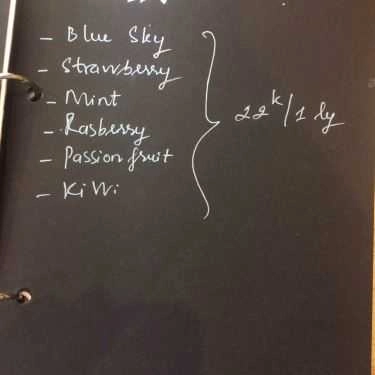 - Blue Sky
- Strawberry
- Mint
- Rasberry
- Passion fruit
- Kiwi
22k/1 ly